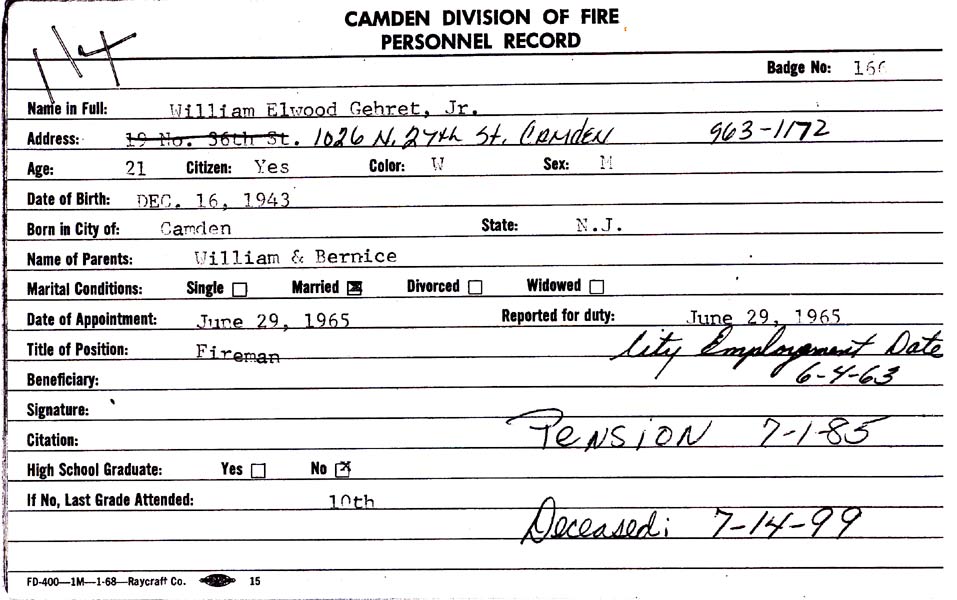 CAMDEN DIVISION OF FIRE
PERSONNEL RECORD
114
Badge No: 166
Name in Full: William Elwood Gehret, Jr.
Address: 19 No. 36th St. 1026 N. 27th St. CAMDEN 963-1172
Age: 21 Citizen: Yes Color: W Sex: M
Date of Birth: DEC. 16, 1943
Born in City of: Camden State: N.J.
Name of Parents: William & Bernice
Marital Conditions: Single Married Divorced Widowed
Date of Appointment: June 29, 1965 Reported for duty: June 29, 1965
Title of Position: Fireman City Employement Date
Beneficiary: 6-4-63
Signature:
Citation: PENSION 7-1-85
High School Graduate: Yes No
If No, Last Grade Attended: 10th
Deceased; 7-14-99
FD-400—1M—1-68—Raycraft Co. 15